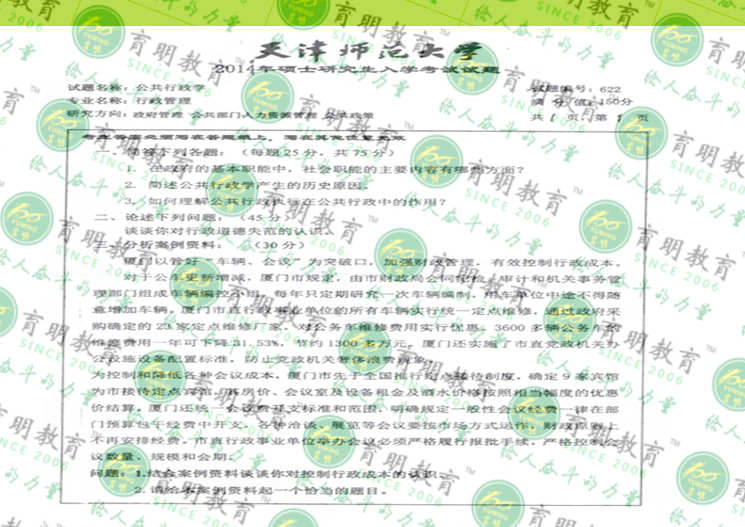 天津师范大学
2014年硕士研究生入学考试试题
试题名称：公共行政学 试题编号：622
专业名称：行政管理 满 分 值：150分
研究方向：政府管理 公共部门人力资源管理 公共政策 共 1 页，第 1 页
考生答案必须写在答题纸上，写在其他位置无效
一、简答下列各题：（每题25分，共75分）
1. 在政府的基本职能中，社会职能的主要内容有哪些方面？
2. 简述公共行政学产生的历史原因。
3. 如何理解公共行政执行在公共行政中的作用？
二、论述下列问题：（45分）
谈谈你对行政道德失范的认识。
三、分析案例资料：（30分）
厦门以管好“车辆、会议”为突破口，加强财政管理，有效控制行政成本。
对于公车更新增减，厦门市规定，由市财政局会同监察、审计和机关事务管
理部门组成车辆编控小组，每年只定期研究一次车辆编制，用车单位中途不得随
意增加车辆。厦门市直行政事业单位的所有车辆实行统一定点维修，通过政府采
购确定的23家定点维修厂家，对公务车维修费用实行优惠。3600多辆公务车的
维修费用一年可下降31.53%，节约1300多万元。厦门还实施了市直党政机关办
公设施设备配置标准，防止党政机关奢侈浪费现象。
为控制和降低各种会议成本，厦门市先于全国推行定点接待制度，确定9家宾馆
为市接待定点宾馆，其房价、会议室及设备租金及酒水价格按照相当幅度的优惠
价结算。厦门还统一会议费开支标准和范围，明确规定一般性会议经费一律在部
门预算包干经费中开支，各种洽谈、展览等会议要按市场方式运作，财政原则上
不再安排经费。市直行政事业单位举办会议必须严格履行报批手续，严格控制会
议数量、规模和会期。
问题：1.结合案例资料谈谈你对控制行政成本的认识。
2.请给本案例资料起一个恰当的题目。
育明教育™
SINCE 2006
给人奋斗的力量
YUMING
育明